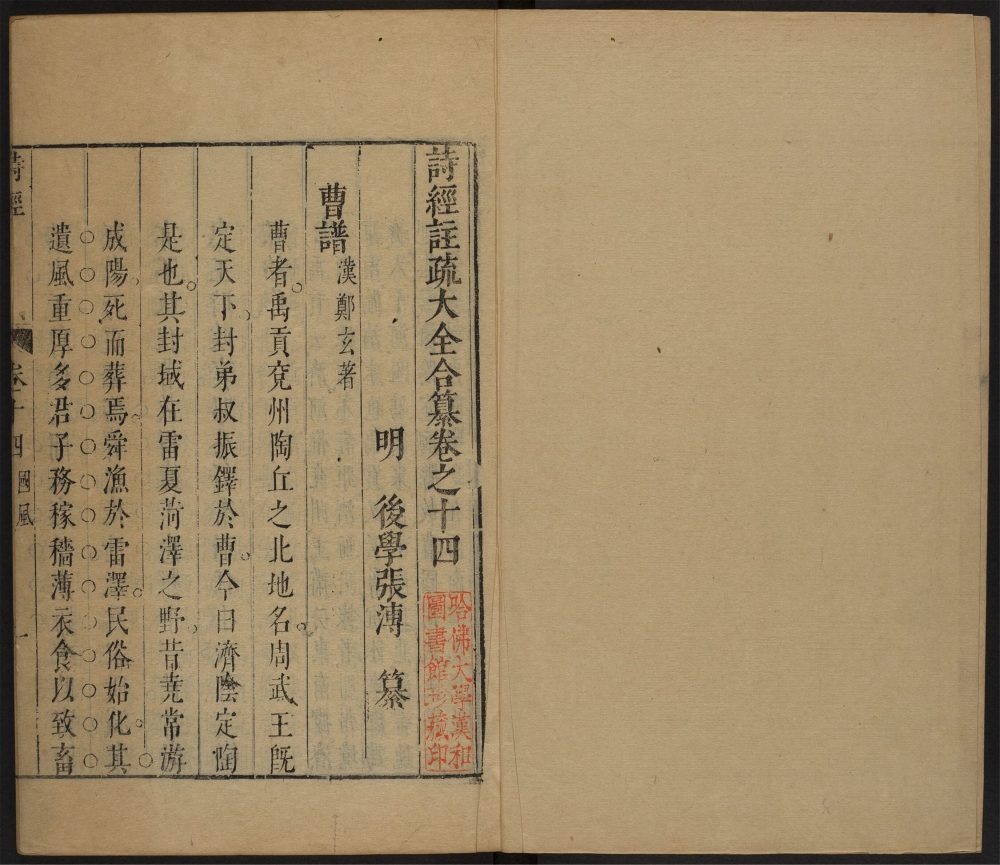 詩經註疏大全合纂卷之十四
明 後學張溥 纂
曹譜 漢鄭玄著
曹者禹貢兗州陶丘之北地名周武王既
定天下封弟叔振鐸於曹今曰濟陰定陶
是也其封域在雷夏菏澤之野昔堯常游
成陽死而葬焉舜漁於雷澤民俗始化其
遺風重厚多君子務稼穡薄衣食以致畜
詩經 卷十四 國風 一
哈佛大學漢和
圖書館珍藏印